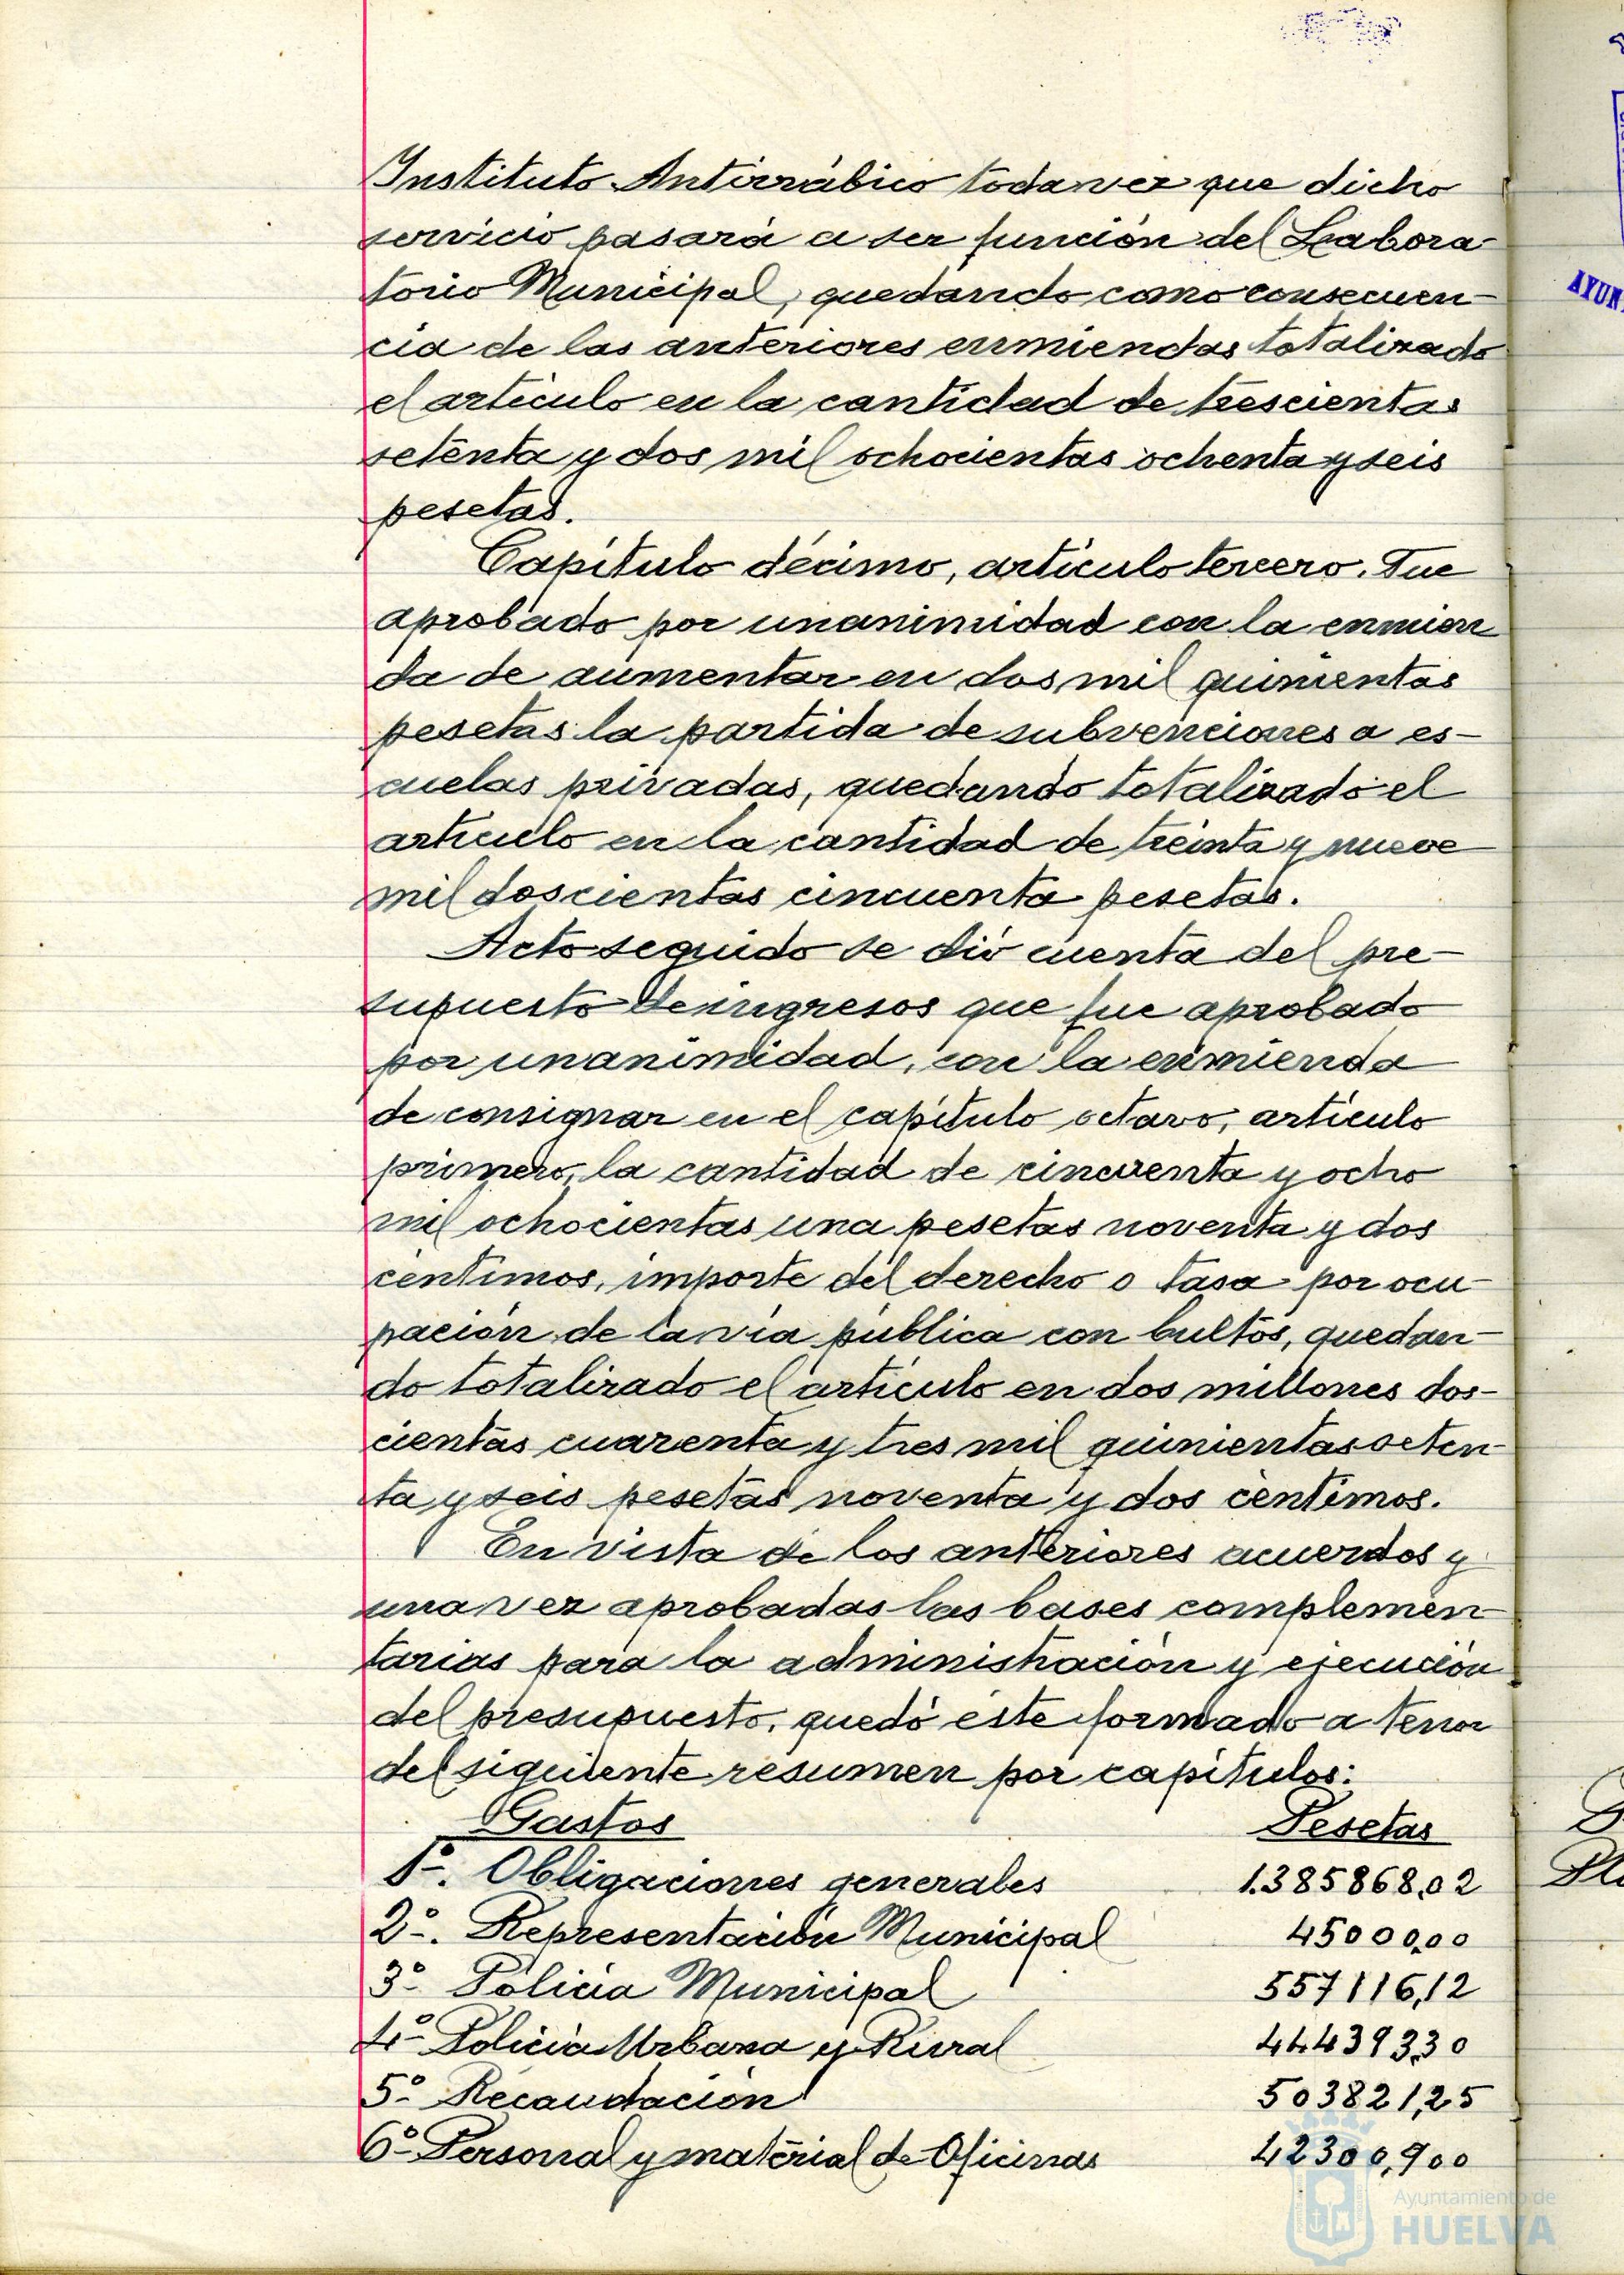 Instituto Antirrábico toda vez que dicho
servicio pasará a ser función del Labora-
torio Municipal, quedando como consecuen-
cia de las anteriores enmiendas totalizado
el artículo en la cantidad de trescientas
setenta y dos mil ochocientas ochenta y seis
pesetas.
Capítulo décimo, artículo tercero. Fue
aprobado por unanimidad con la enmien
da de aumentar en dos mil quinientas
pesetas la partida de subvenciones a es-
cuelas privadas, quedando totalizado el
artículo en la cantidad de treinta y nueve
mil doscientas cincuenta pesetas.
Acto seguido se dió cuenta del pre-
supuesto de ingresos que fue aprobado
por unanimidad, con la enmienda
de consignar en el capítulo octavo, artículo
primero, la cantidad de cincuenta y ocho
mil ochocientas una pesetas noventa y dos
céntimos, importe del derecho o tasa por ocu-
pación de la vía pública con bultos, quedan-
do totalizado el artículo en dos millones dos-
cientas cuarenta y tres mil quinientas seten-
ta y seis pesetas noventa y dos céntimos.
En vista de los anteriores acuerdos y
una vez aprobadas las bases complemen-
tarias para la administración y ejecución
del presupuesto, quedó éste formado a tenor
del siguiente resumen por capítulos:
Gastos Pesetas
1º. Obligaciones generales 1.385868,02
2º. Representación Municipal 45000,00
3º Policía Municipal 557116,12
4º Policía Urbana y Rural 444393,30
5º Recaudación 503821,25
6º Personal y material de Oficinas 42300,900
AYUN
Ayuntamiento de
HUELVA